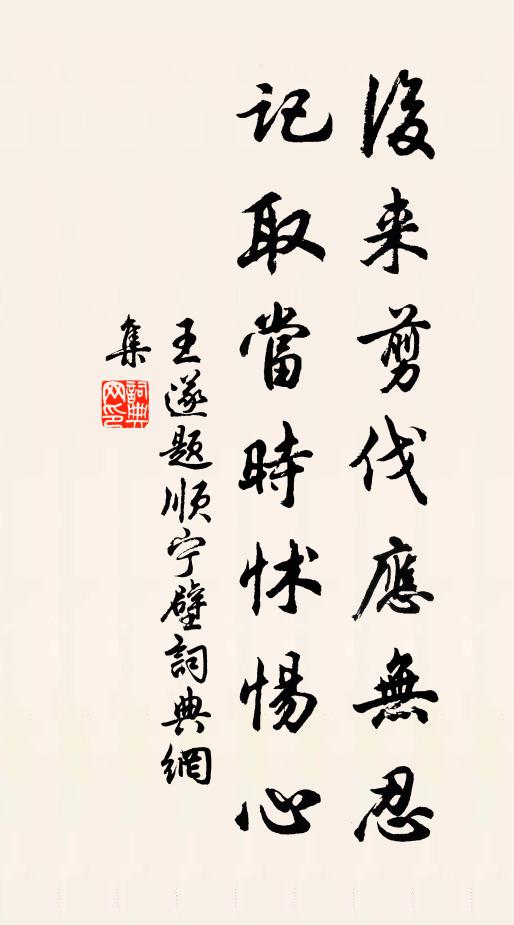 後来剪伐應無忍
記取當時怵惕心
王遂题顺宁壁詞典網
集
詞典網印